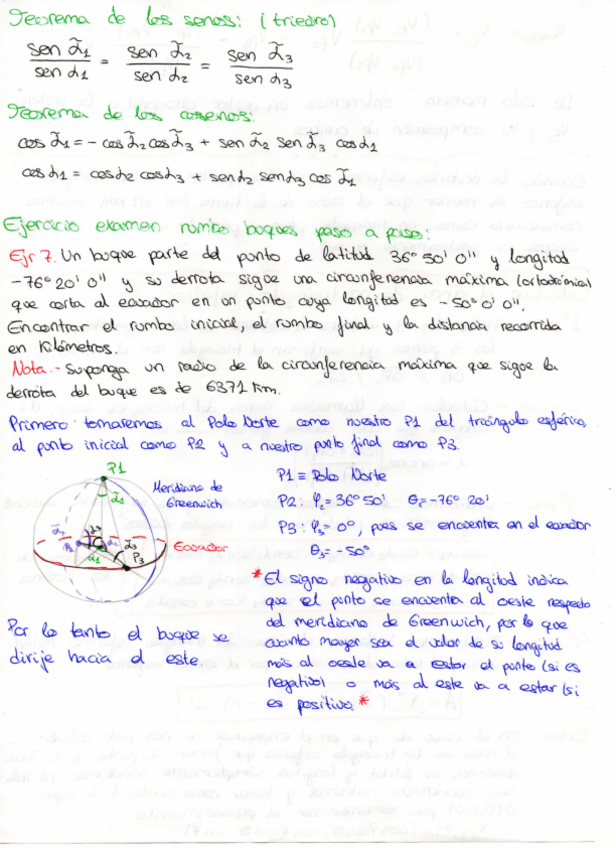 Teorema de los senos: (triedro)
sen α̃1 / sen α1 = sen α̃2 / sen α2 = sen α̃3 / sen α3
Teorema de los cosenos:
cos α̃1 = - cos α̃2 cos α̃3 + sen α̃2 sen α̃3 cos α1
cos α1 = cos α2 cos α3 + sen α2 sen α3 cos α̃1
Ejercicio examen rumbo buques paso a paso:
Ejr 7. Un buque parte del punto de latitud 36° 50' 0'' y longitud
-76° 20' 0'' y su derrota sigue una circunferencia máxima (ortodrómia)
que corta al ecuador en un punto cuya longitud es -50° 0' 0''.
Encontrar el rumbo inicial, el rumbo final y la distancia recorrida
en Kilómetros.
Nota.- Suponga un radio de la circunferencia máxima que sigue la
derrota del buque es de 6371 Km.
Primero tomaremos al Polo Norte como nuestro P1 del triángulo esférico,
al punto inicial como P2 y a nuestro punto final como P3.
P1
Meridiano de
Greenwich
α̃1
α̃2
α3
α2
α̃3
P2
α1
P3
Ecuador
P1 ≡ Polo Norte
P2: φ2 = 36° 50' θ2 = -76° 20'
P3: φ3 = 0°, pues se encuentra en el ecuador
θ3 = -50°
*El signo negativo en la longitud indica
que el punto se encuentra al oeste respecto
del meridiano de Greenwich, por lo que
cuanto mayor sea el valor de su longitud
más al oeste va a estar el punto (si es
negativo) o más al este va a estar (si
es positivo.*
Por lo tanto el buque se
dirije hacia el este